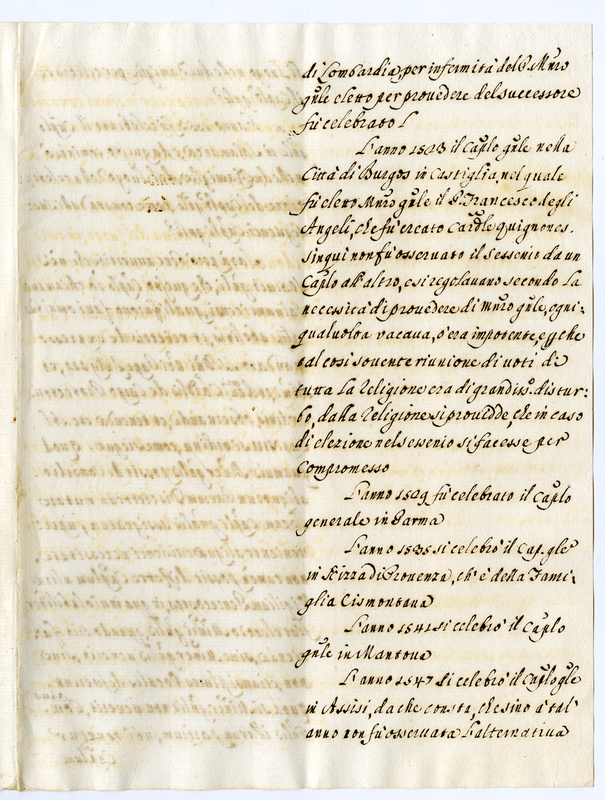 di Lombardia, per infermità del P. Mñro
gñle eletto per provedere del successore
fù celebrato l
L'anno 1523 il Cap̃lo gñle nella
Città di Burgos in Castiglia, nel quale
fù eletto Mñro gñle il P. Francesco degli
Angeli, che fù creato Cardle quignones.
sinqui non fù osservato il sessenio da un
Cap̃lo all'altro, e si regolavano secondo la
necessità di provedere di Mñro gñle, ogni-
qualvolta vacava, ò era impotente, e
tal così sovente riunione di voti di
tutta la Religione era di grandiss.º distur-
bo, dalla Religione si providde, che in caso
di elezione nel sessenio si facesse per
compromesso
L'anno 1529 fù celebrato il Cap̃lo
generale in Parma
L'anno 1535 si celebrò il Cap. gle
in Nizza di Provenza, ch'è della Fami-
glia Cismontana
L'anno 1541 si celebrò il Cap̃lo
gñle in Mantova
L'anno 1547 si celebrò il Cap̃lo gle
in Assisi, da che consta, che sino à tal'
anno non fù osservata l'alternativa